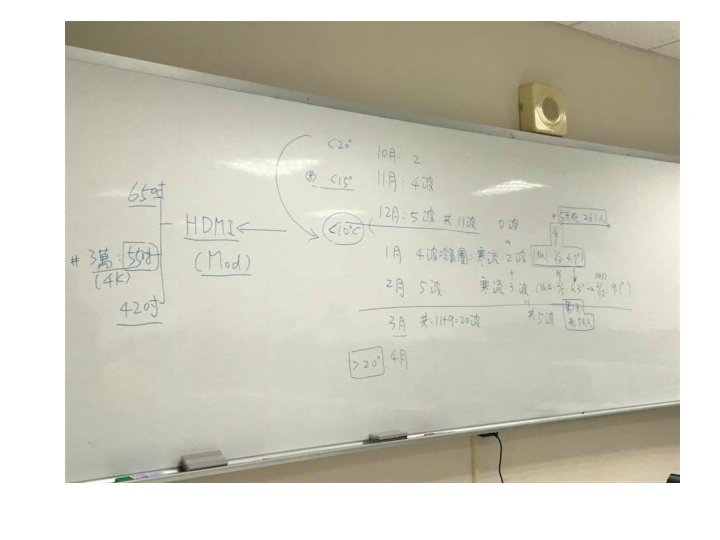 65吋
HDMI
(Mod)
#3萬:55吋
(4K)
42吋
<20° 10月: 2
<15° 11月: 4波
<10°C 12月: 5波 共11波 0波
1月 4波冷氣團 寒流: 2波 (No.1 4.7°)
2月 5波 寒流: 3波 6.3° → 9.1°)
3月 共:11+9:20波 共5波
>20° 4月
5天死261人